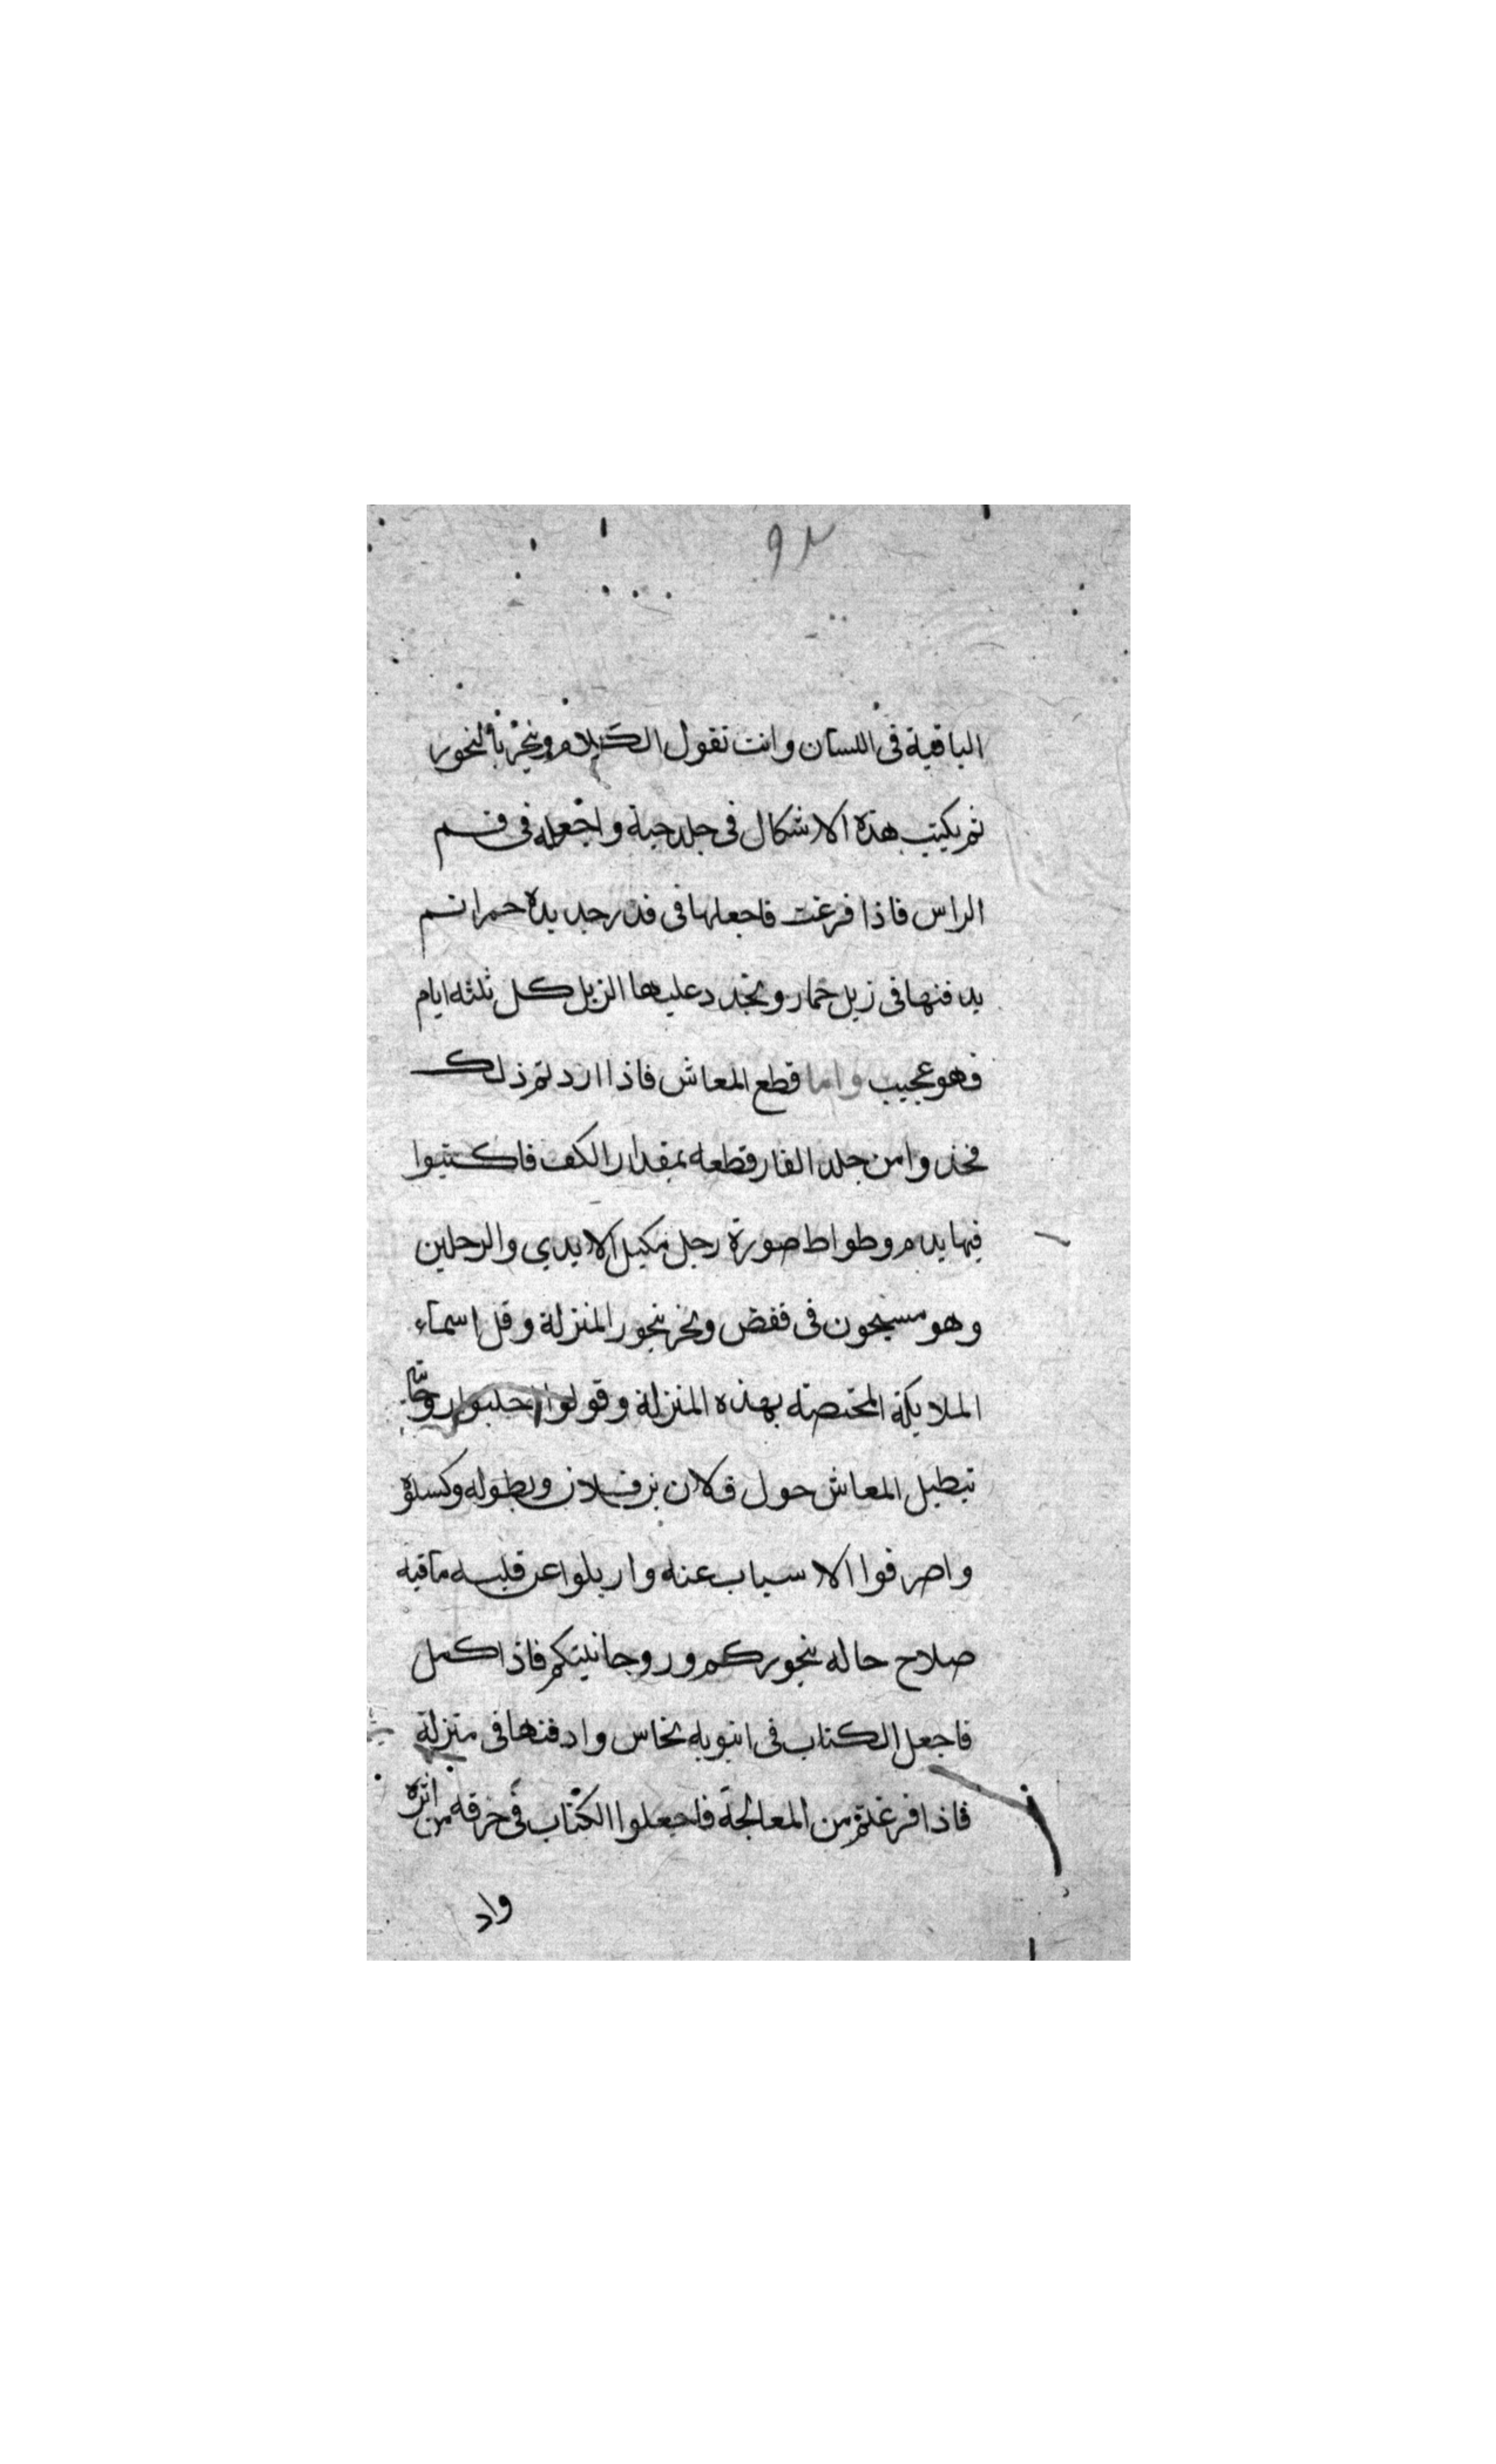 ٩٣
الباقية فى اللسان وانت تقول الكلام وتبخر بالبخور
ثم يكتب هذه الاشكال فى جلد حية واجعله فى فم
الراس فاذا فرغت فاجعلها فى قدر جديدة حمرا ثم
يدفنها فى زبل حمار وتجدد عليها الزبل كل ثلثه ايام
فهو عجيب واما قطع المعاش فاذا اردتم ذلك
فخذوا من جلد الفار قطعه بمقدار الكف فاكتبوا
فيها بدم وطواط صورة رجل مكبل الايدي والرجلين
وهو مسجون فى قفص وبخر ببخور المنزلة وقل اسماء
الملايكة المختصة بهذه المنزلة وقولوا اجلبوا
تبطيل المعاش حول فلان بن فلان وبطوله وكسلة
واصرفوا الاسباب عنه وازيلوا عن قلبه ما فيه
صلاح حاله ببخوركم وروحانيتكم فاذا كمل
فاجعل الكتاب فى انبوبه نحاس وادفنها فى منزلة
فاذا فرغتم من المعالجة فاجعلوا الكتاب فى خرقه من اثره
واد